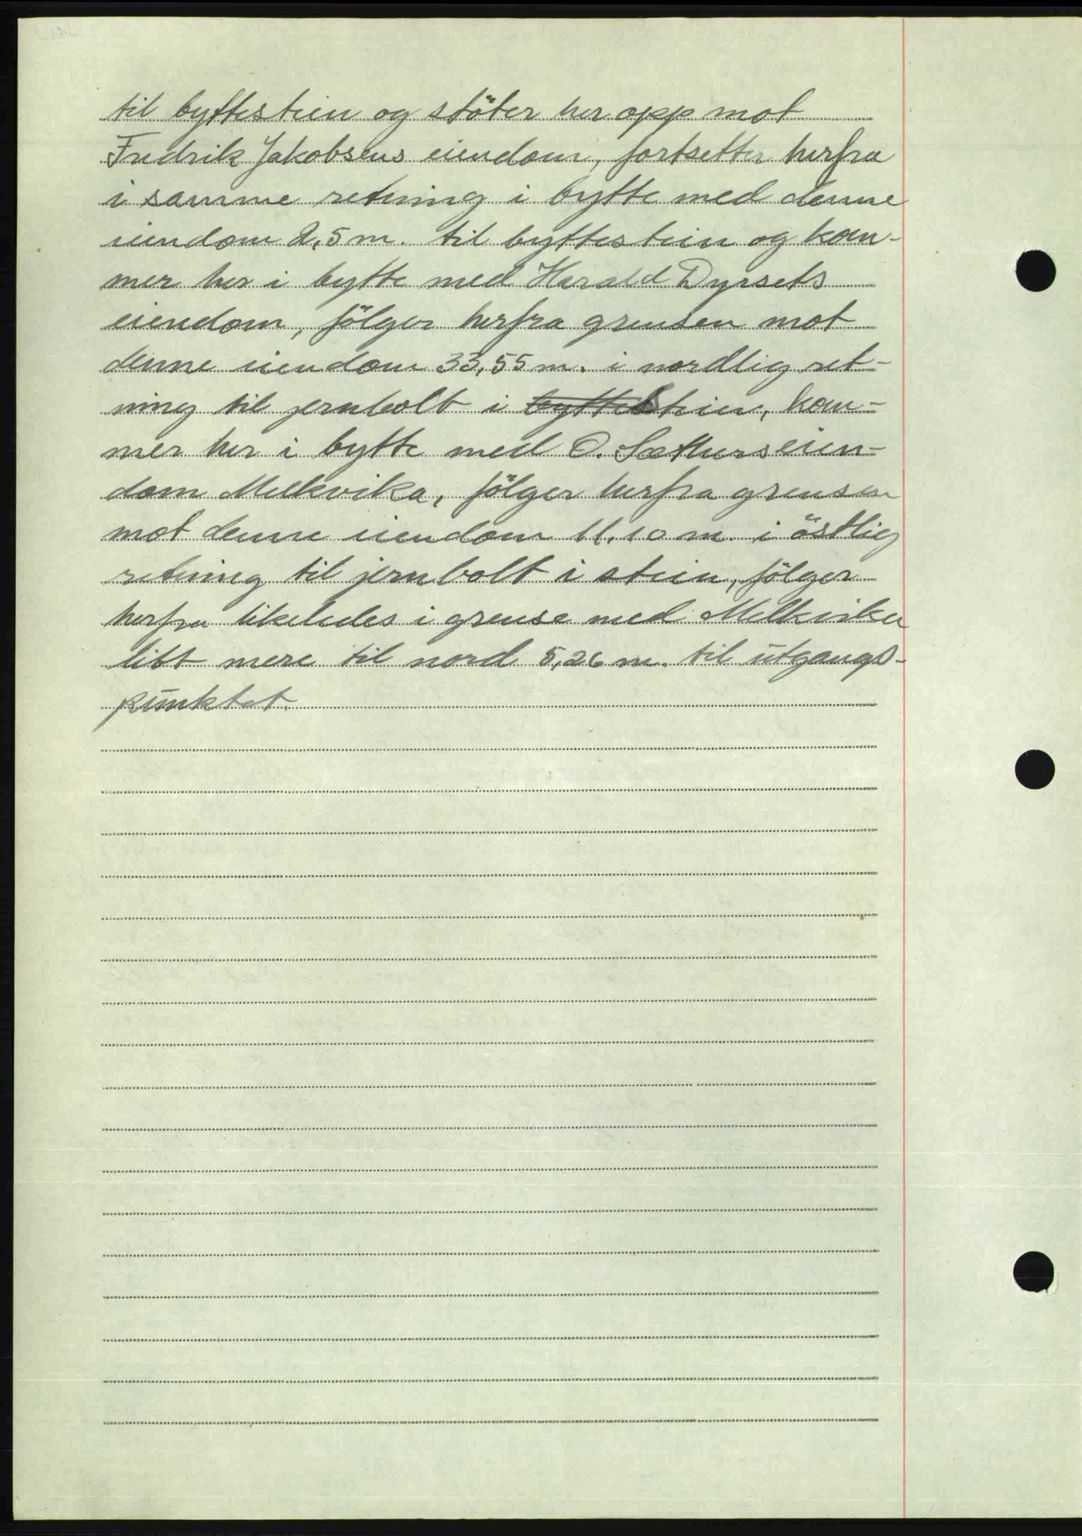 til byttestein og støter her opp mot
Fredrik Jakobsens eiendom, fortsetter herfra
i samme retning i bytte med denne
eiendom 2,5 m. til byttestein og kom-
mer her i bytte med Harald Dyrsets
eiendom, følger herfra grensen mot
denne eiendom 33,55 m. i nordlig ret-
ning til jernbolt i stein, kom-
mer her i bytte med O. Sæthers eien-
dom Melkvika, følger herfra grensen
mot denne eiendom 11.10 m. i östlig
retning til jernbolt i stein, følger
herfra likeledes i grense med Melkvika
litt mere til nord 5,26 m. til utgangs-
punktet.